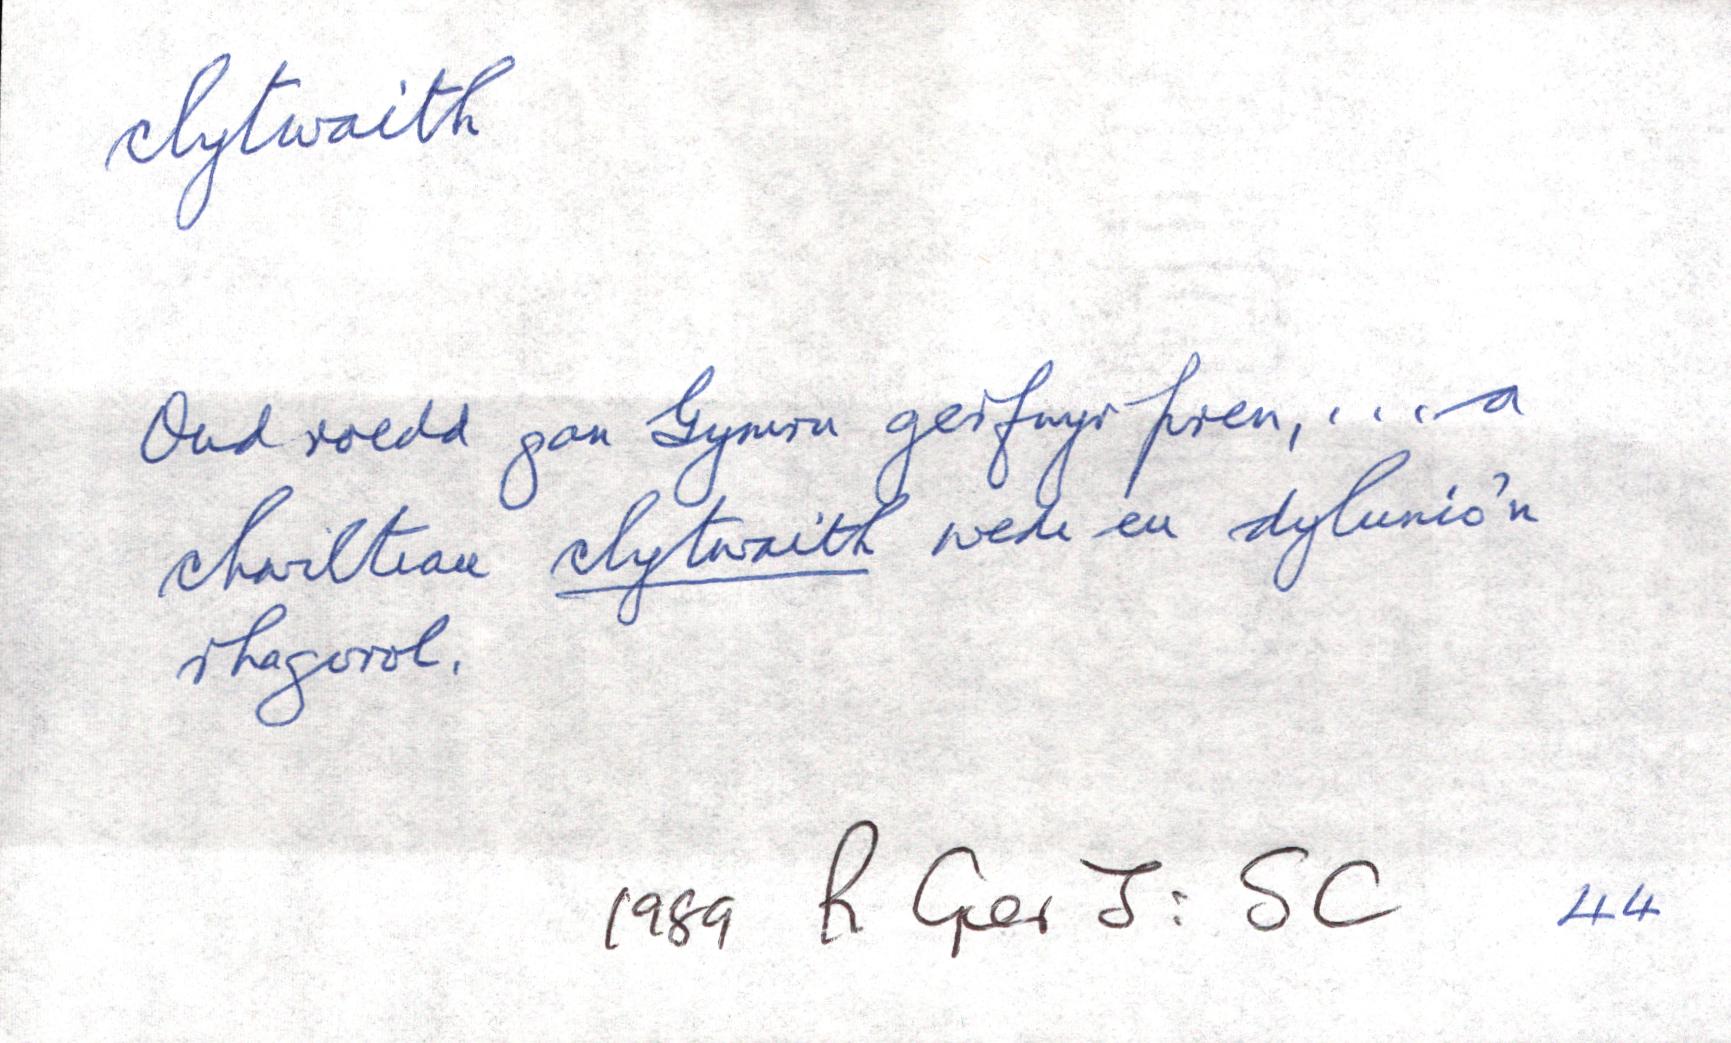 clytwaith
Ond roedd gan Gymru gerfwyr pren, . . . a
chwiltiau clytwaith wedi eu dylunio'n
rhagorol.
1989 R Ger J: SC 44